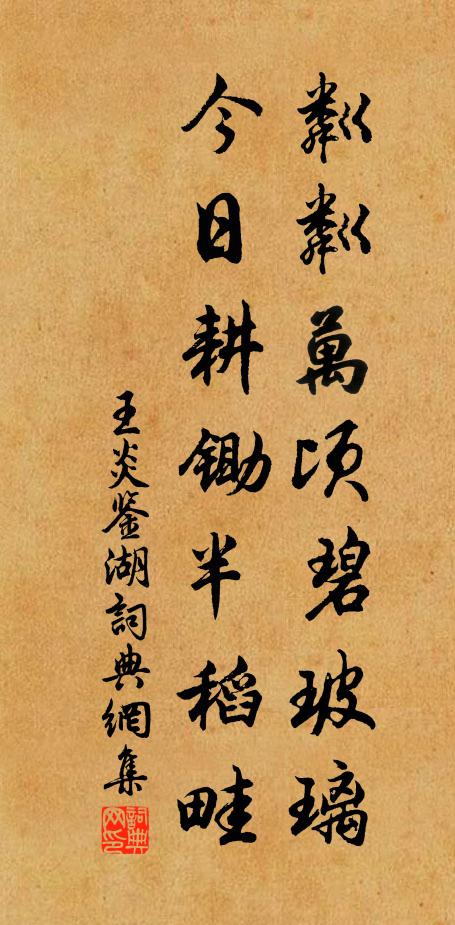 粼粼萬頃碧玻璃
今日耕鋤半稻畦
王炎鉴湖詞典網集
詞典网印